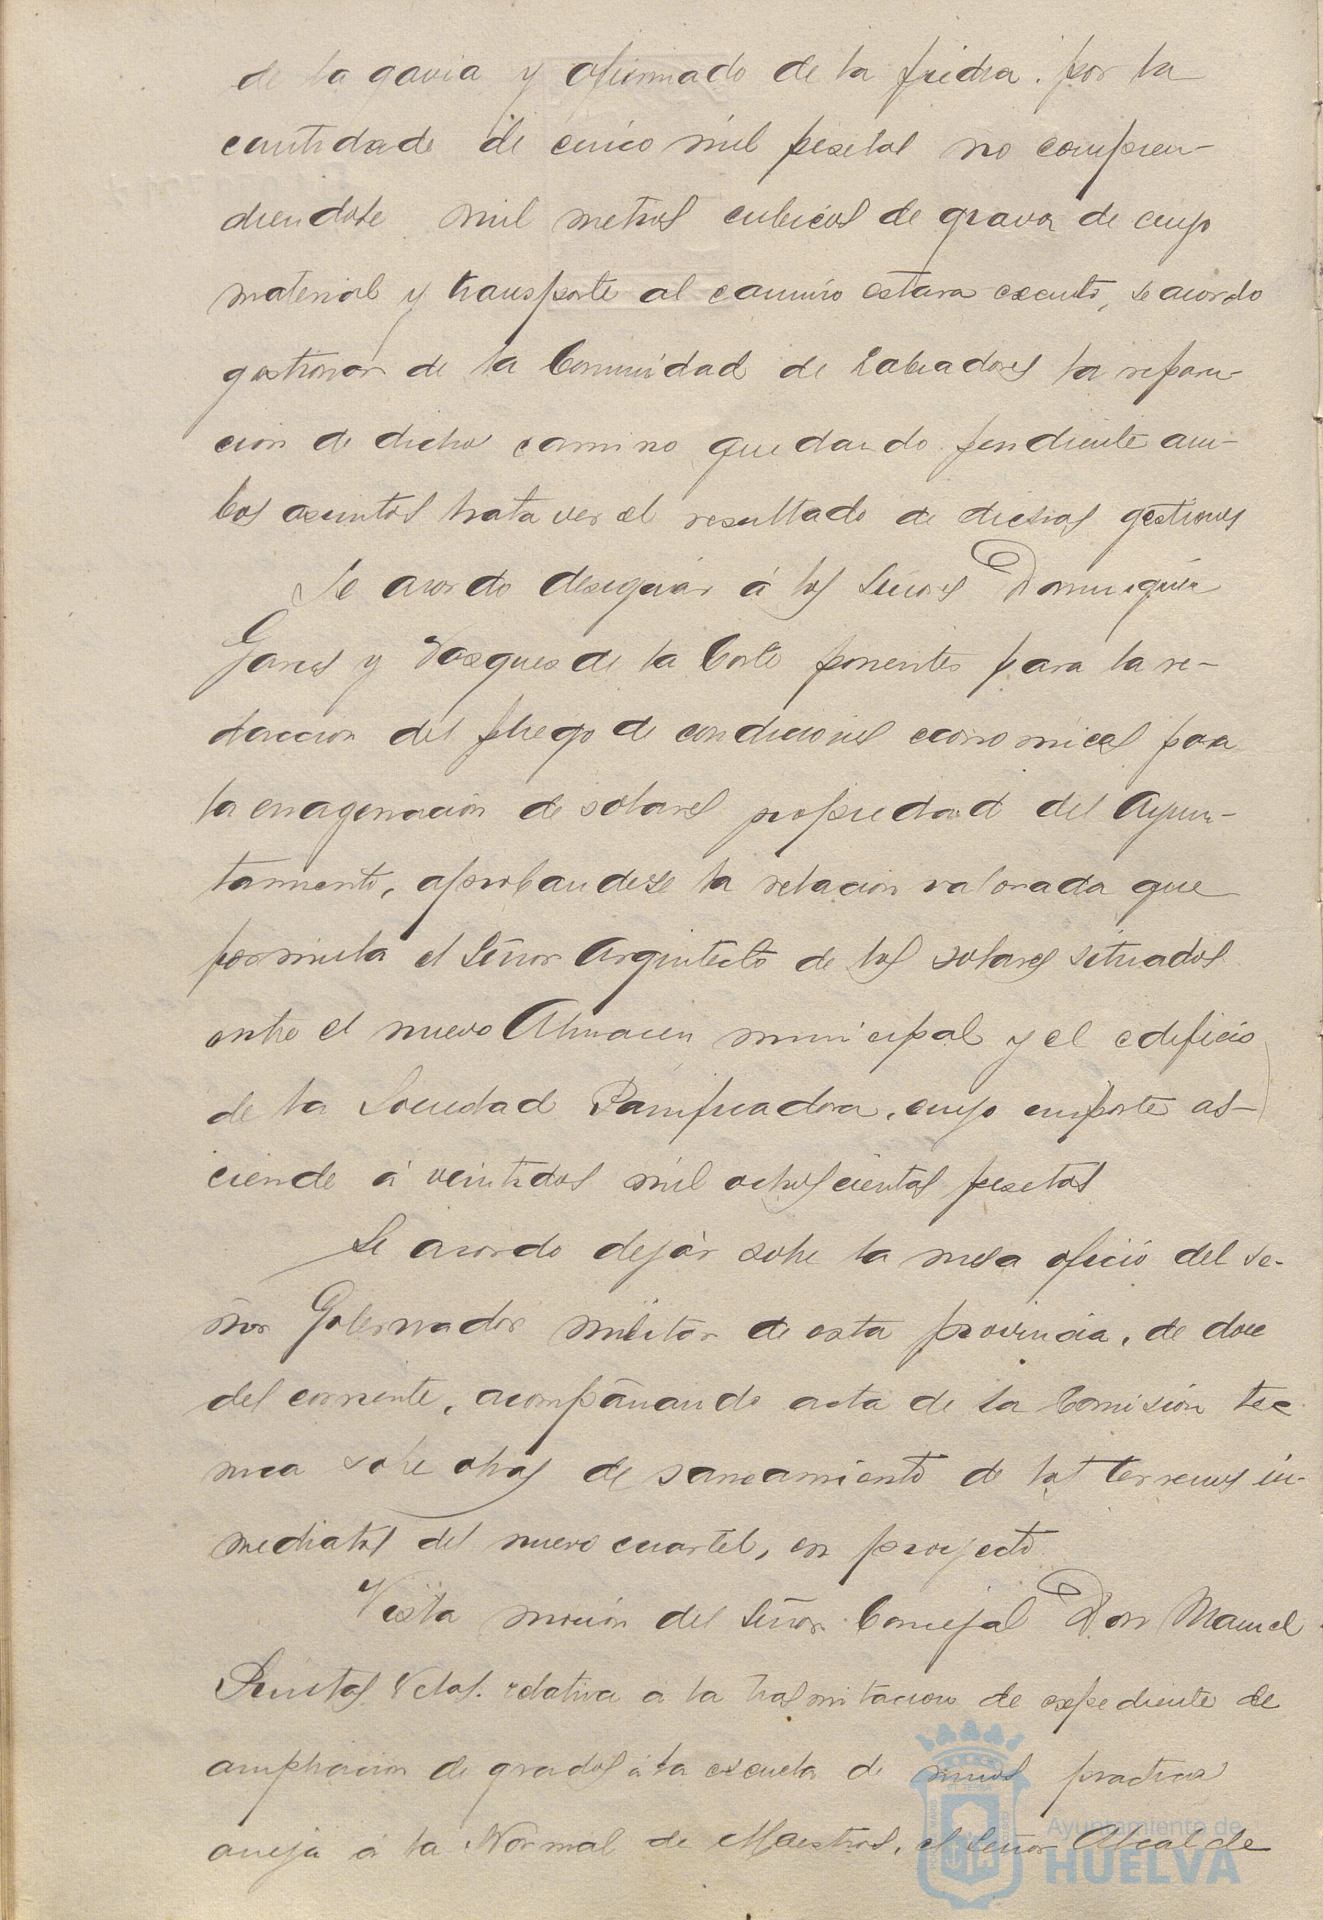 de la gavia y afirmado de la piedra. por la
cantidad de cinco mil pesetas no compren-
diendose mil metros cubicos de grava de cuyo
material y transporte al camino estara exento, se acordo
gestionar de la Comunidad de Labradores la repara-
cion de dicho camino quedando pendiente am-
bos asuntos hasta ver el resultado de dichas gestiones
Se acordo designar á los Señores Dominguez
Garcés y Vazquez de la Corte ponentes para la re-
daccion del pliego de condiciones economicas para
la enagenación de solares propiedad del Ayun-
tamiento, aprobandose la relacion valorada que
formula el Señor Arquitecto de los solares situados
entre el nuevo Almacen municipal y el edificio
de la Sociedad Panificadora, cuyo importe as-
ciende á veintidos mil ochocientas pesetas
Se acordo dejár sobre la mesa oficio del Se-
ñor Gobernador militar de esta provincia, de doce
del corriente, acompañando acta de la Comisión tec
nica sobre obras de saneamiento de los terrenos in-
mediatos del nuevo cuartel, en proyecto
Vista moción del Señor Concejal Don Manuel
relativa á la trasmitacion de expediente de
ampliacion de grados á la escuela de niños practica
aneja á la Normal de Maestros, el Señor Alcalde
Ayuntamiento de
HUELVA